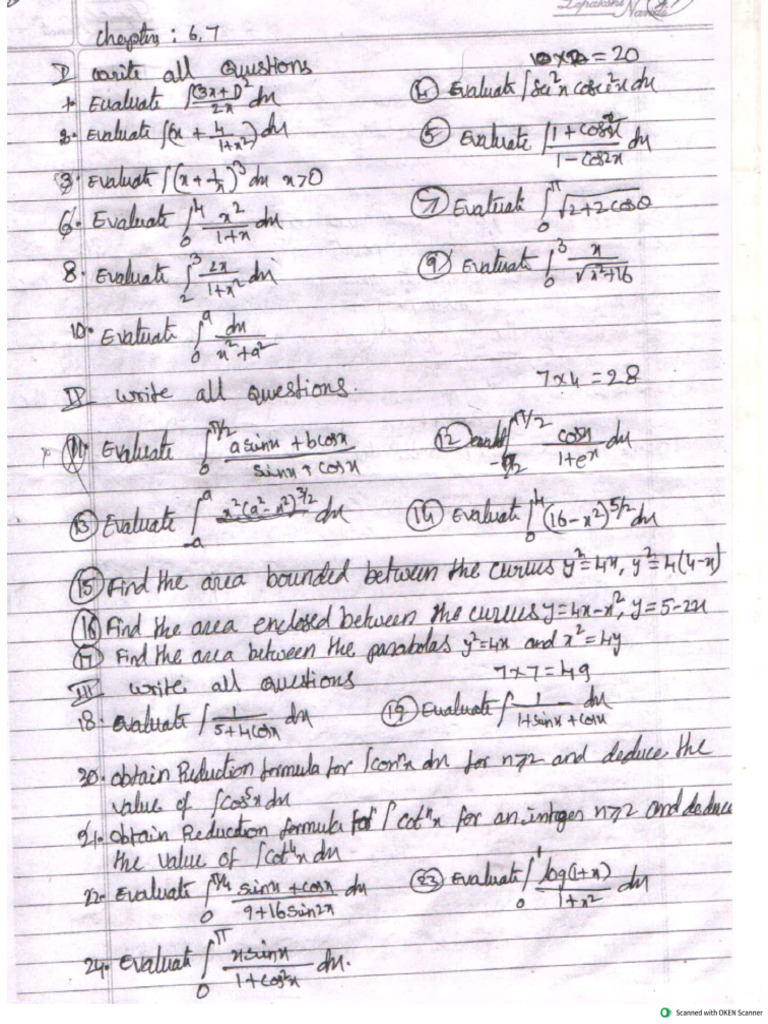 Lepakshi
Chapter : 6,7
I write all Questions 10 x 2 = 20
1. Evaluate ∫(3x+1)²/2x dx
④ Evaluate ∫sec²x cosec²x dx
2. Evaluate ∫(x + 4/(1+x²)) dx
⑤ Evaluate ∫(1+cos²x)/(1-cos2x) dx
3. Evaluate ∫(x + 1/x)³ dx x>0
6. Evaluate ∫₀⁴ x²/(1+x) dx
⑦ Evaluate ∫₀^π √(2+2cosθ)
8. Evaluate ∫₂³ 2x/(1+x²) dx
⑨ Evaluate ∫₀³ x/√(x²+16)
10. Evaluate ∫₀^a dx/(x²+a²)
II write all questions. 7x4 = 28
⑪ Evaluate ∫₀^(π/2) (a sinx + b cosx)/(sinx + cosx)
⑫ ∫_(-π/2)^(π/2) cosx/(1+e^x) dx
⑬ Evaluate ∫_(-a)^a x²(a²-x²)^(3/2) dx
⑭ Evaluate ∫₀⁴ (16-x²)^(5/2) dx
⑮ Find the area bounded between the curves y²=4x, y²=4(4-x)
⑯ Find the area enclosed between the curves y=4x-x², y=5-2x
⑰ Find the area between the parabolas y²=4x and x²=4y
III write all questions 7x7=49
18. evaluate ∫1/(5+4cosx) dx
⑲ Evaluate ∫1/(1+sinx+cosx) dx
20. obtain Reduction formula for ∫cosⁿx dx for n≥2 and deduce the
value of ∫cos⁵x dx
21. obtain Reduction formula for ∫cotⁿx for an integer n≥2 and deduce
the value of ∫cot⁴x dx
22. Evaluate ∫₀^(π/4) (sinx + cosx)/(9+16sin2x) dx
㉓ Evaluate ∫₀¹ log(1+x)/(1+x²) dx
24. Evaluate ∫₀^π x sinx/(1+cos²x) dx.
Scanned with OKEN Scanner